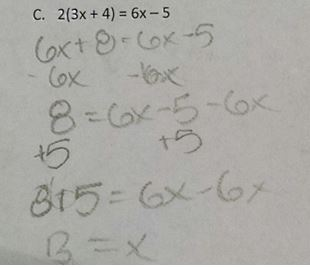 C. 2(3x + 4) = 6x – 5
6x+8=6x-5
-6x -6x
8=6x-5-6x
+5 +5
8+5=6x-6x
13=x